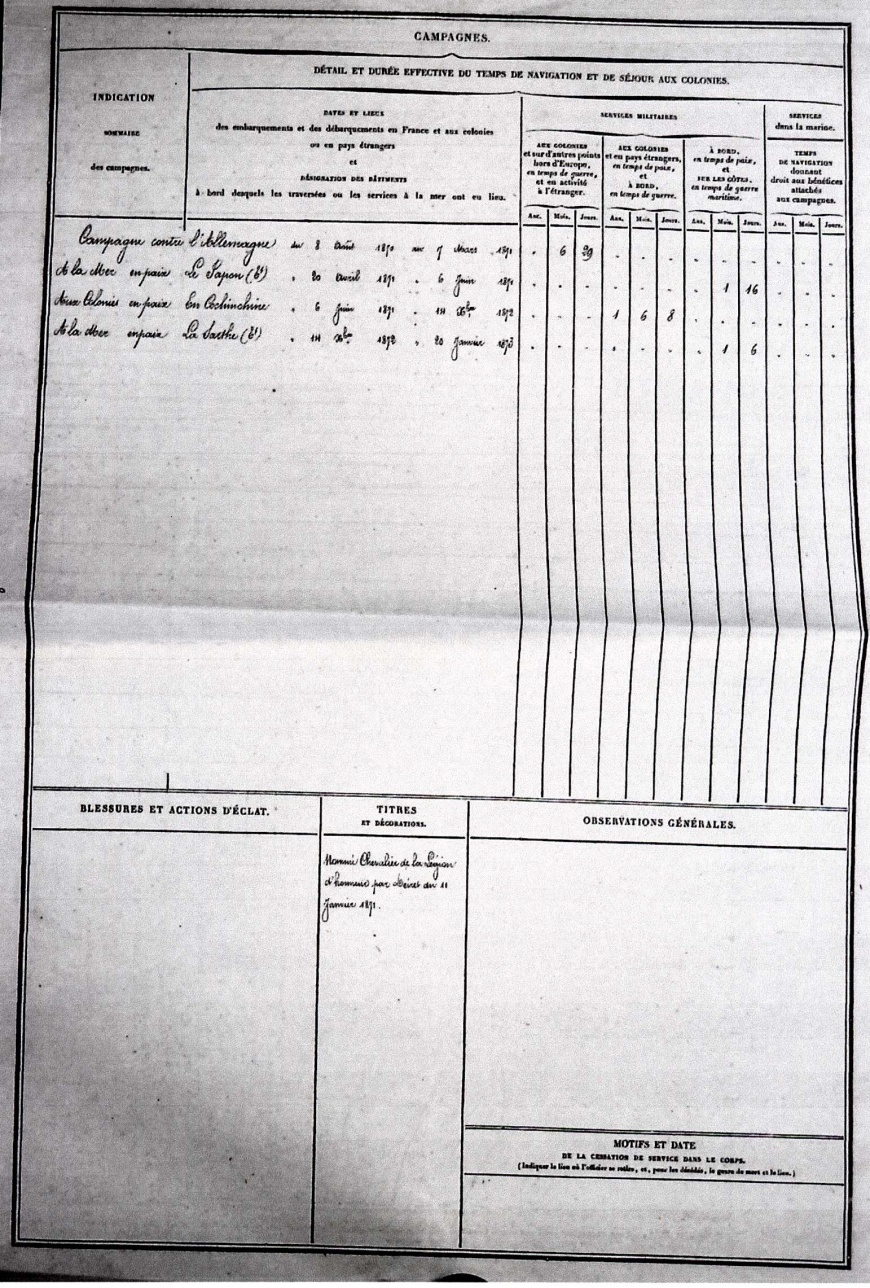 CAMPAGNES.
DÉTAIL ET DURÉE EFFECTIVE DU TEMPS DE NAVIGATION ET DE SÉJOUR AUX COLONIES.
INDICATION
SOMMAIRE
des campagnes.
DATES ET LIEUX
des embarquements et des débarquements en France et aux colonies
ou en pays étrangers
et
DÉSIGNATION DES BÂTIMENTS
à bord desquels les traversées ou les services à la mer ont eu lieu.
SERVICES MILITAIRES
AUX COLONIES
et sur d'autres points
hors d'Europe,
en temps de guerre,
et en activité
à l'étranger.
AUX COLONIES
et en pays étrangers,
en temps de paix,
et
À BORD,
en temps de guerre.
À BORD,
en temps de paix,
et
SUR LES CÔTES,
en temps de guerre
maritime.
SERVICES
dans la marine.
TEMPS
DE NAVIGATION
donnant
droit aux bénéfices
attachés
aux campagnes.
Ans. Mois. Jours. Ans. Mois. Jours. Ans. Mois. Jours. Ans. Mois. Jours.
Campagne contre l'Allemagne du 8 Août 1870 au 7 Mars 1871 . 6 29 . . . . . . . . .
A la Mer en paix Le Japon (Bt) . 20 avril 1871 . 6 Juin 1871 . . . . . . . 1 16 . . .
Aux Colonies en paix En Cochinchine . 6 Juin 1871 . 14 Xbre 1872 . . . 1 6 8 . . . . . .
A la Mer en paix La Sarthe (Bt) . 14 Xbre 1872 . 20 Janvier 1873 . . . . . . . 1 6 . . .
BLESSURES ET ACTIONS D'ÉCLAT.
TITRES
ET DÉCORATIONS.
Nommé Chevalier de la Légion
d'honneur par Décret du 11
Janvier 1871.
OBSERVATIONS GÉNÉRALES.
MOTIFS ET DATE
DE LA CESSATION DE SERVICE DANS LE CORPS.
(Indiquer le lieu où l'officier se retire, et, pour les décédés, le genre de mort et le lieu.)